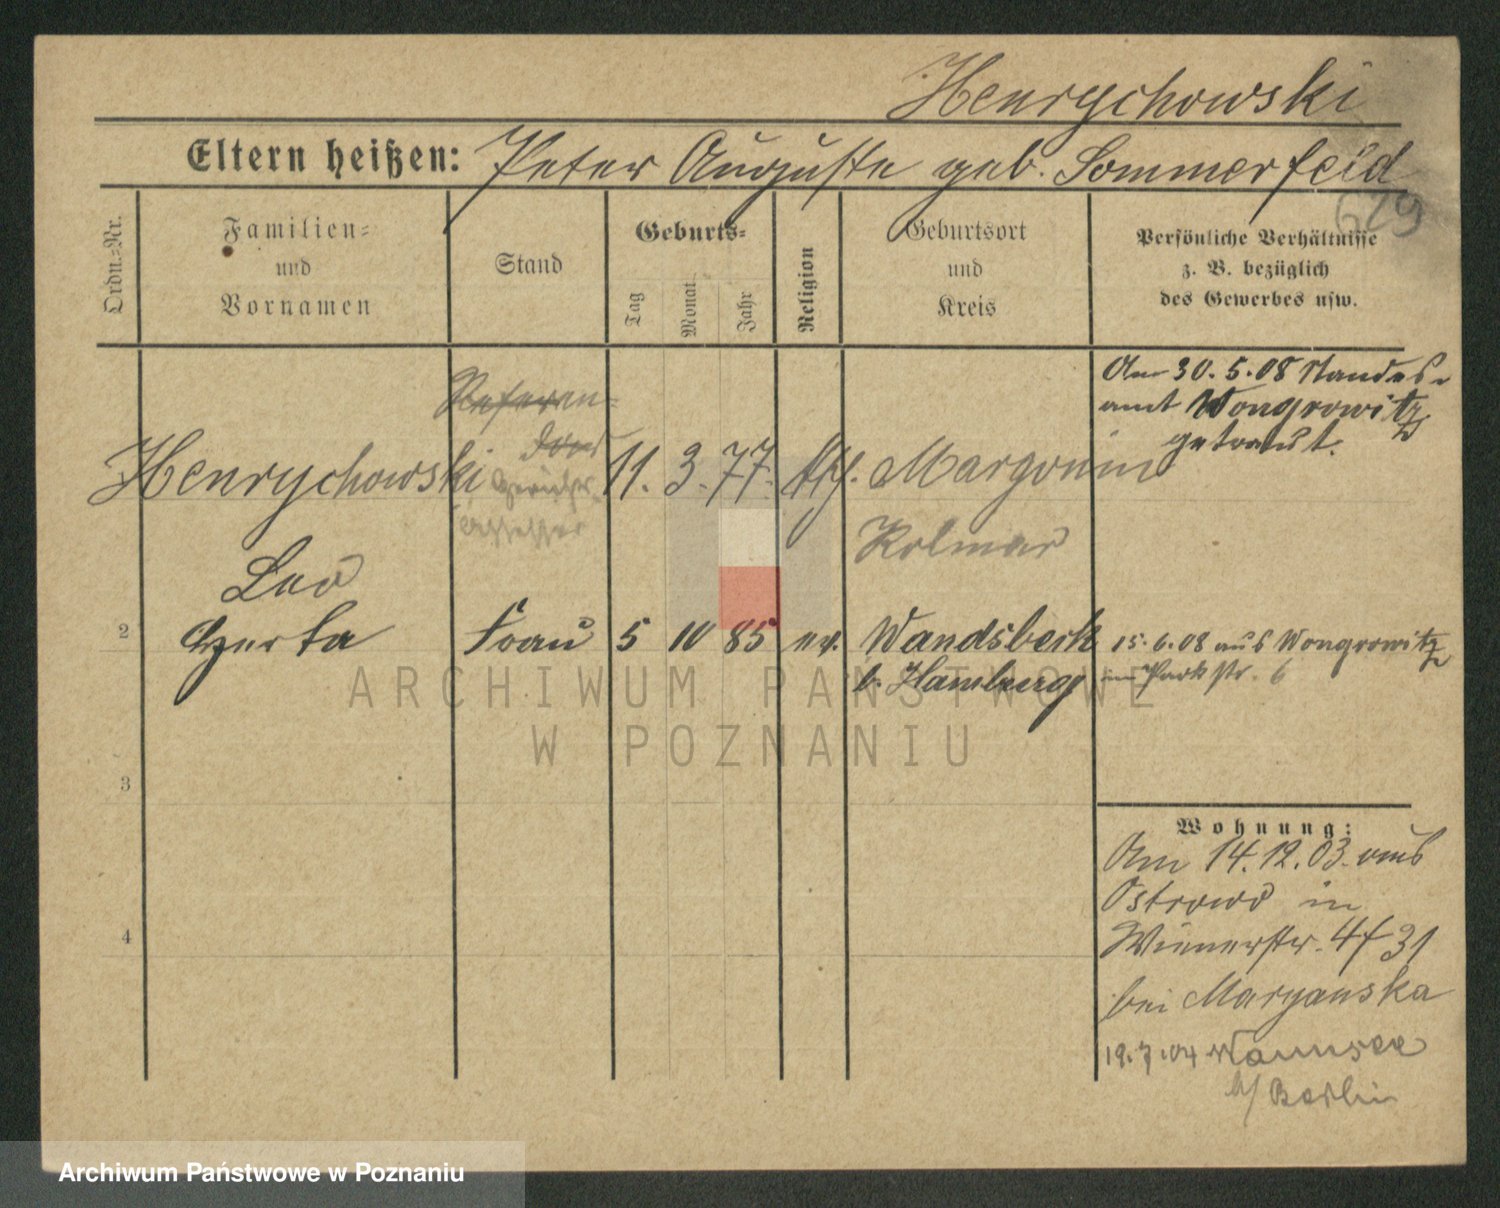 Henrychowski
Eltern heißen: Peter Auguste geb. Sommerfeld
629
Ordn.-Nr.
Familien-
und
Vornamen
Stand
Geburts-
Tag
Monat
Jahr
Religion
Geburtsort
und
Kreis
Persönliche Verhältnisse
z. B. bezüglich
des Gewerbes usw.
Am 30.5.08 Standes-
amt Wongrowitz
getraut.
Referen-
dar
Henrychowski 11. 3. 77. Margonin
Gerichts-
Assessor
Kolmar
Leo
2 Herta Frau 5 10 85 ev. Wandsbeck
b. Hamburg
15.6.08 aus Wongrowitz
in Parkstr. 6
3
4
Wohnung:
Am 14.12.03. aus
Ostrowo in
Wienerstr. 4 f 31
bei Maryanska
19.7.04 Wannsee
b/ Berlin
ARCHIWUM PAŃSTWOWE
W POZNANIU
Archiwum Państwowe w Poznaniu